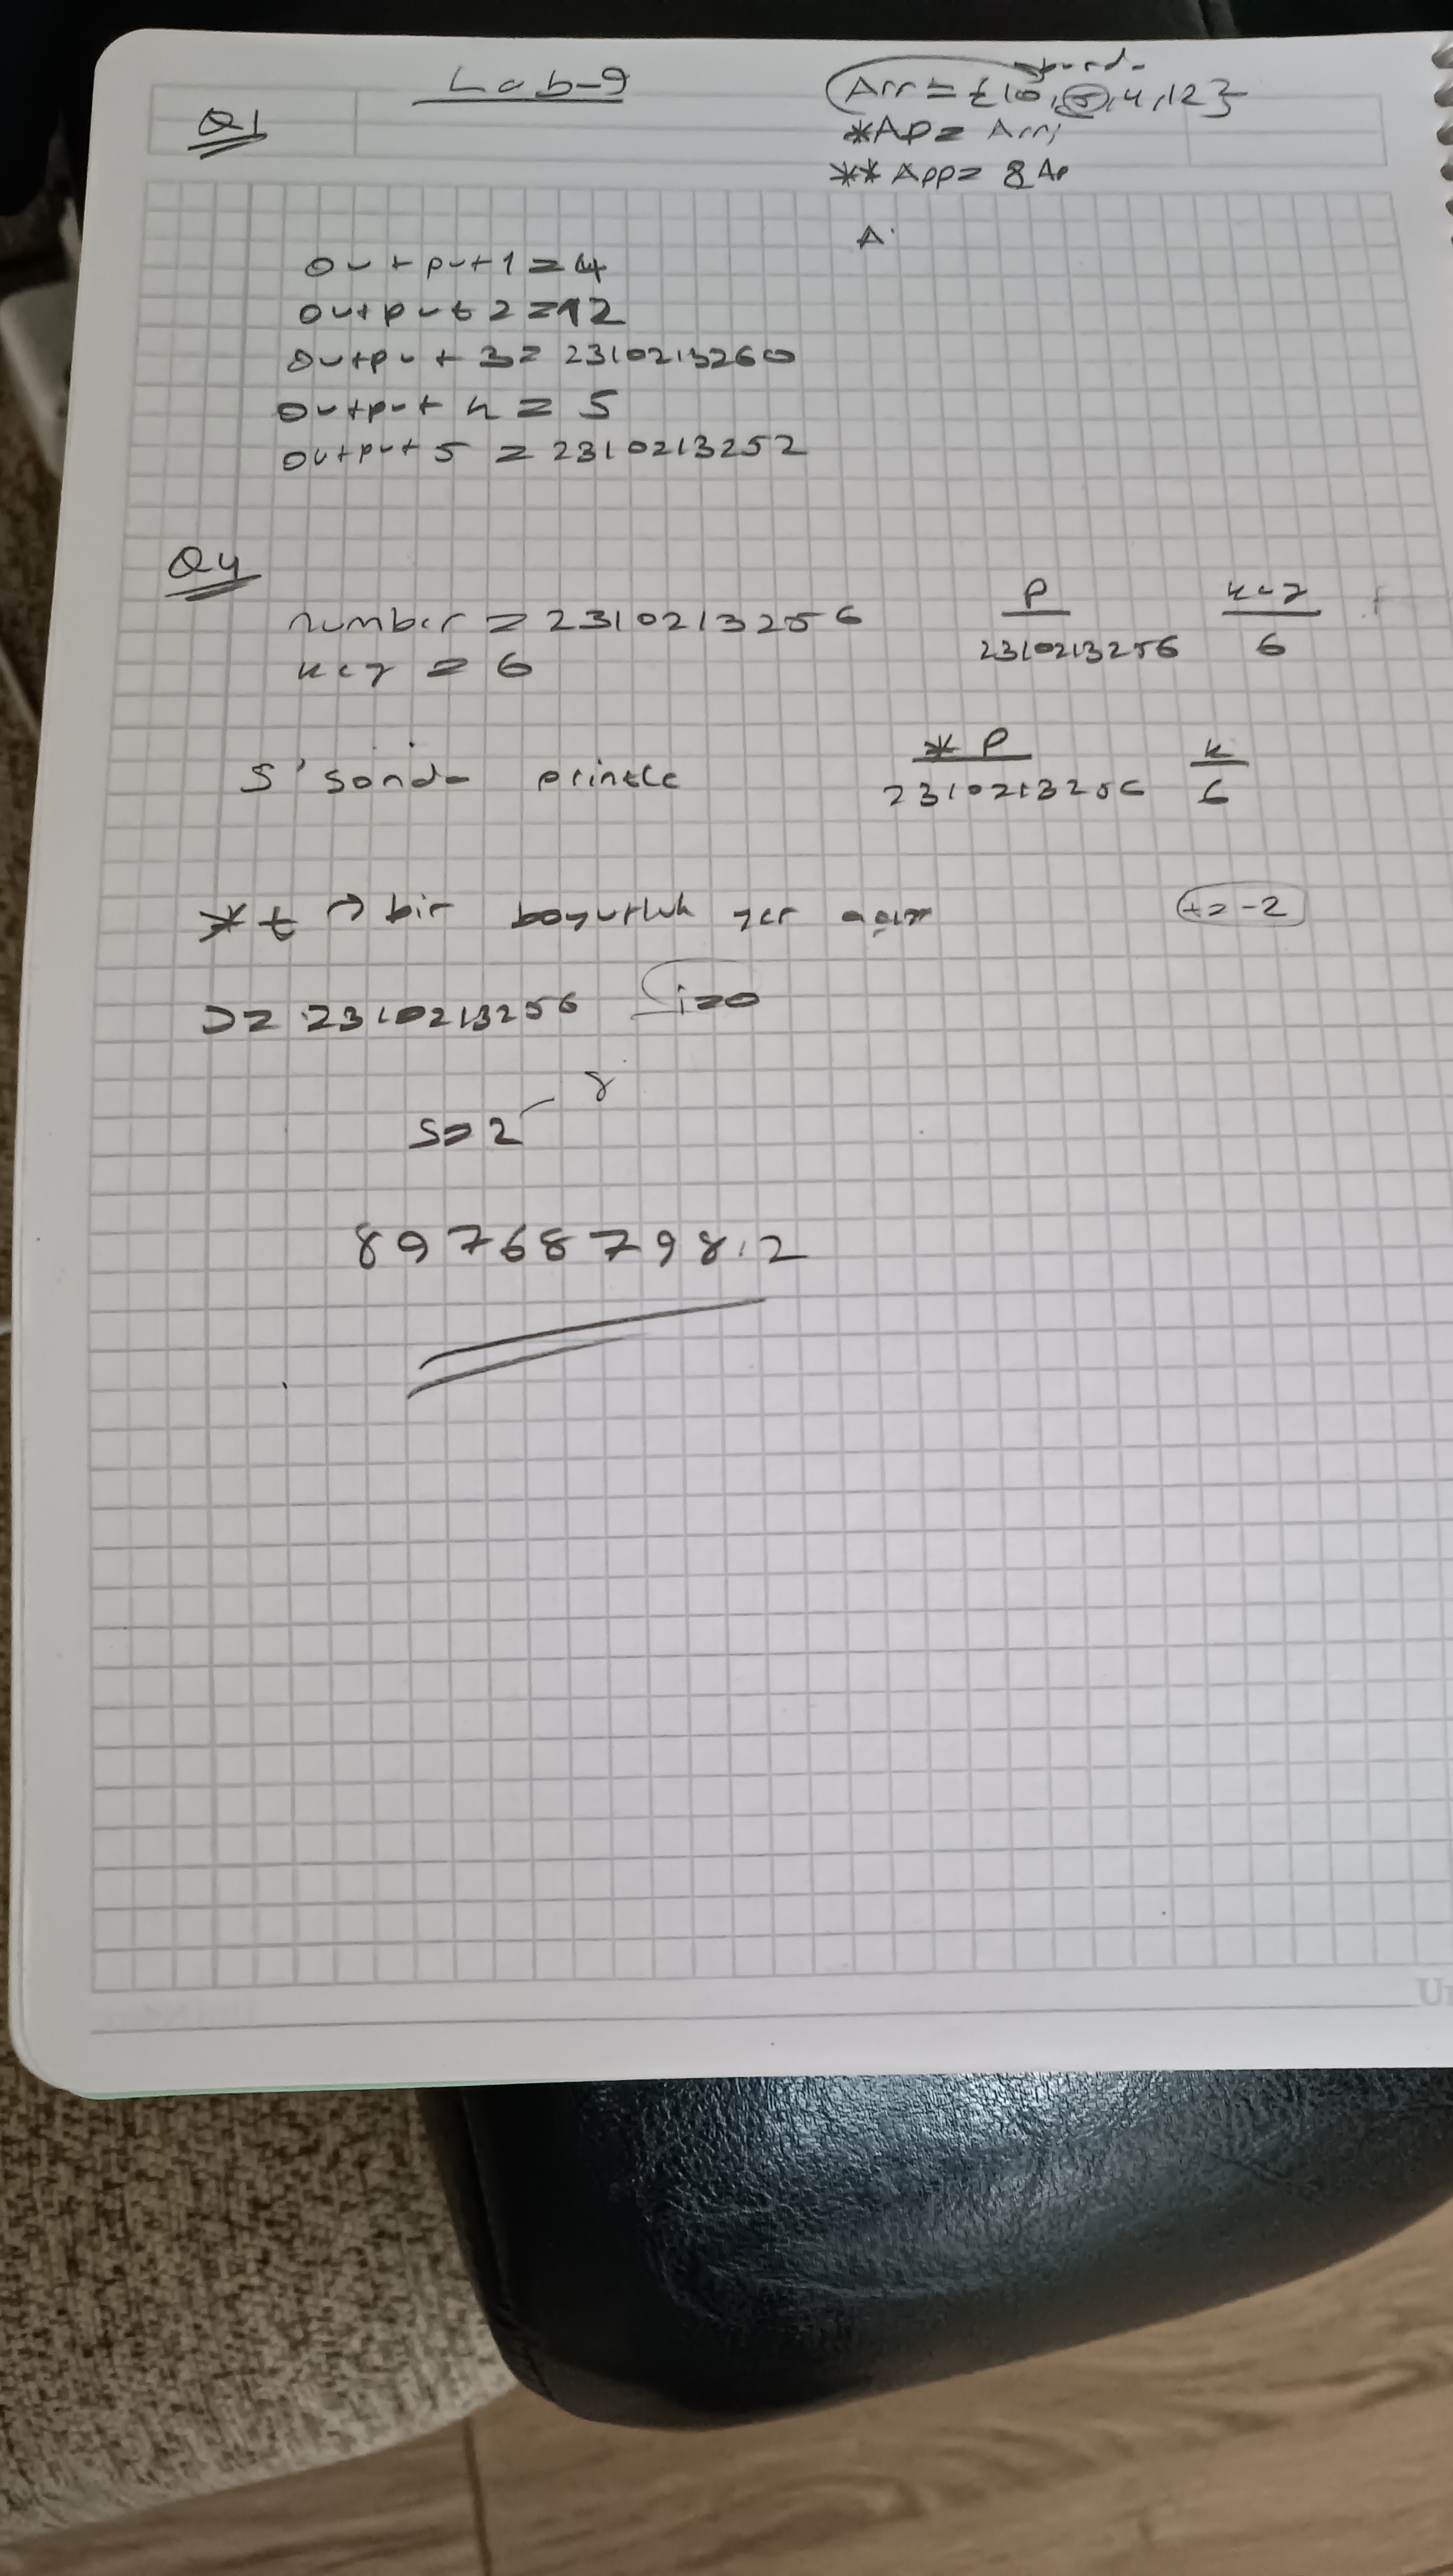 Lab-9
Q1
burda
Arr = {10, 5, 4, 12}
*Ap = Arr;
** App = & Ap
A
output 1 = 4
output 2 = 12
output 3 = 2310213260
output 4 = 5
output 5 = 2310213252
Q4
number = 2310213256
key = 6
P key
2310213256 6
S' sonda printle
* P k
2310213256 6
* t → bir boyutluk yer açar
t = -2
D = 2310213256 i=0
S = 2 8
8976879812